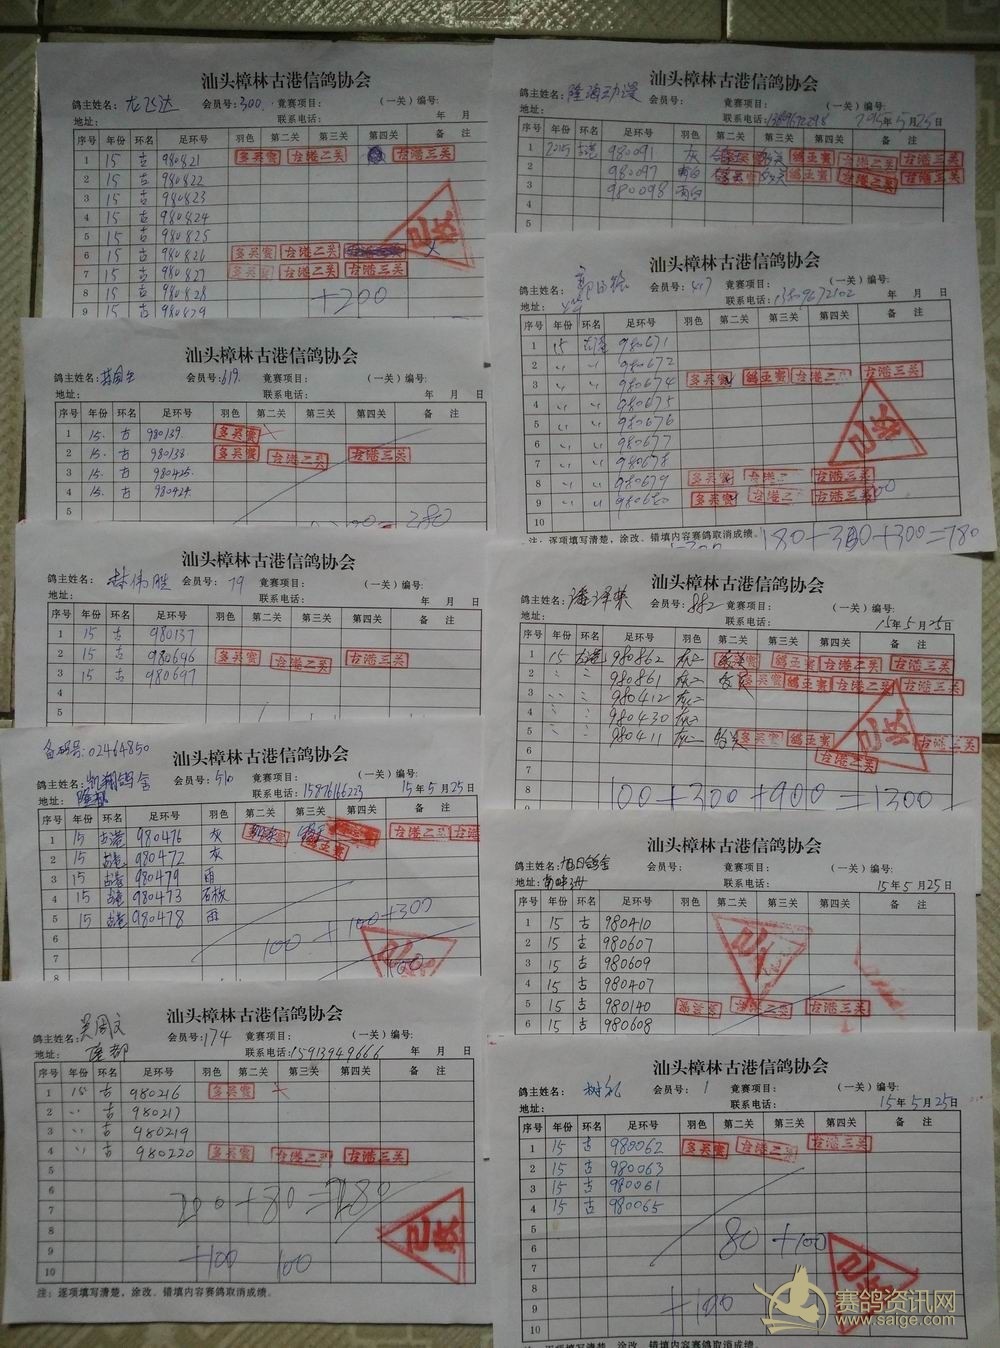 汕头樟林古港信鸽协会
鸽主姓名: 龙飞达 会员号: 300. 竟赛项目: (一关)编号:
地址: 联系电话: 年 月 日
序号 年份 环名 足环号 羽色 第二关 第三关 第四关 备 注
1 15 古 980821 多英赛 古港二关 古港三关
2 15 古 980822
3 15 古 980823
4 15 古 980824
5 15 古 980825
6 15 古 980826 多英赛 古港二关
7 15 古 980827 多英赛 古港二关 古港三关
8 15 古 980828
9 15 古 980829
+200
汕头樟林古港信鸽协会
鸽主姓名: 会员号: 619. 竟赛项目: (一关)编号:
地址: 联系电话: 年 月 日
序号 年份 环名 足环号 羽色 第二关 第三关 第四关 备 注
1 15. 古 980139. 多英赛
2 15. 古 980138 多英赛 古港二关 古港三关
3 15. 古 980425.
4 15. 古 980424.
5
280
汕头樟林古港信鸽协会
鸽主姓名: 林伟胜 会员号: 79 竟赛项目: (一关)编号:
地址: 联系电话: 年 月 日
序号 年份 环名 足环号 羽色 第二关 第三关 第四关 备 注
1 15 古 980137
2 15 古 980696 多英赛 古港二关 古港三关
3 15 古 980697
4
5
备码号: 02464850
汕头樟林古港信鸽协会
鸽主姓名: 凯翔鸽舍 会员号: 510 竟赛项目: (一关)编号:
地址: 联系电话: 15876166223 15年5月25日
序号 年份 环名 足环号 羽色 第二关 第三关 第四关 备 注
1 15 古港 980476 灰 古港二关 古港三
2 15 古港 980472 灰 鹤亚赛
3 15 古港 980479 雨
4 15 古港 980473 石板
5 15 古港 980478 雨
6
7
8
100 + 100 +300
汕头樟林古港信鸽协会
鸽主姓名: 吴周文 会员号: 174 竟赛项目: (一关)编号:
地址: 隆都 联系电话: 15913949666 年 月 日
序号 年份 环名 足环号 羽色 第二关 第三关 第四关 备 注
1 15 古 980216 多英赛
2 〃 古 980217
3 〃 古 980219
4 〃 古 980220 多英赛 古港二关 古港三关
6
7
8
9
10
200+80=280
+100 100
注: 逐项填写清楚,涂改、错填内容赛鸽取消成绩。
汕头樟林古港信鸽协会
鸽主姓名: 隆海动漫 会员号: 竟赛项目: (一关)编号:
地址: 联系电话: 年5月25日
序号 年份 环名 足环号 羽色 第二关 第三关 第四关 备 注
1 2015 古港 980091 灰 鹤亚赛 古港二关 古港三关
2 980097 雨白 鹤亚赛 古港二关 古港三关
3 980098 雨白
5
汕头樟林古港信鸽协会
鸽主姓名: 会员号: 417 竟赛项目: (一关)编号:
地址: 联系电话: 13509672102 年 月 日
序号 年份 环名 足环号 羽色 第二关 第三关 第四关 备 注
1 15 古港 980671
2 〃 〃 980672
3 〃 〃 980674 多英赛 鹤亚赛 古港二关 古港三关
4 〃 〃 980675
5 〃 〃 980676
6 〃 〃 980677
7 〃 〃 980678
8 〃 〃 980679 多英赛 古港二 古港三关
9 〃 〃 980680 多英赛 古港二 古港三关
10
注: 逐项填写清楚,涂改、错填内容赛鸽取消成绩。
180+300+300=780
汕头樟林古港信鸽协会
鸽主姓名: 潘泽荣 会员号: 882 竟赛项目: (一关)编号:
地址: 联系电话: 15年5月25日
序号 年份 环名 足环号 羽色 第二关 第三关 第四关 备 注
1 15 古港 980862 灰 鹤亚赛 古港二关 古港三关
2 〃 〃 980861 灰 多英赛 鹤亚赛 古港二关 古港三关
3 〃 〃 980412 灰
4 〃 〃 980430 灰
5 〃 〃 980411 灰 多英赛 鹤亚赛 古港三关
6 古港二关
7
8
100+300+900=1300
汕头樟林古港信鸽协会
鸽主姓名: 旭日鸽舍 会员号: 竟赛项目: (一关)编号:
地址: 联系电话: 15年5月25日
序号 年份 环名 足环号 羽色 第二关 第三关 第四关 备 注
1 15 古 980410
2 15 古 980607
3 15 古 980609
4 15 古 980407
5 15 古 980140 古港二关 古港三关
6 15 古 980608
汕头樟林古港信鸽协会
鸽主姓名: 树礼 会员号: 1 竟赛项目: (一关)编号:
地址: 联系电话: 15年5月25日
序号 年份 环名 足环号 羽色 第二关 第三关 第四关 备 注
1 15 古 980062 多英赛 古港二关 古港三关
2 15 古 980063
3 15 古 980061
4 15 古 980065
5
6
7
8
9
10
80 +100
+100
赛鸽资讯网
www.saige.com